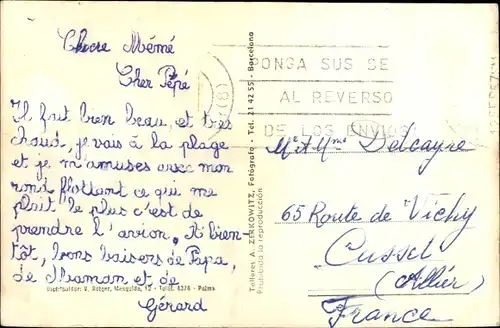 Chere Mémé
Cher Pépé
Il fait bien beau, et très
chaud, je vais à la plage
et je m'amuses avec mon
rond flottant ce qui me
plait le plus c'est de
prendre l'avion. A bien-
tôt, bons baisers de Papa,
de Maman et de
Gérard
Distribuidor: V. Rotger, Menguzán, 12 - Teléf. 4376 - Palma
Talleres A. ZERKOWITZ, Fotógrafo - Tel. 21 42 55 - Barcelona
Prohibida la reproducción
PONGA SUS SE
AL REVERSO
DE LOS ENVIOS
Mr & Mme Delcayre
65 Route de Vichy
Cusset
(Allier)
France